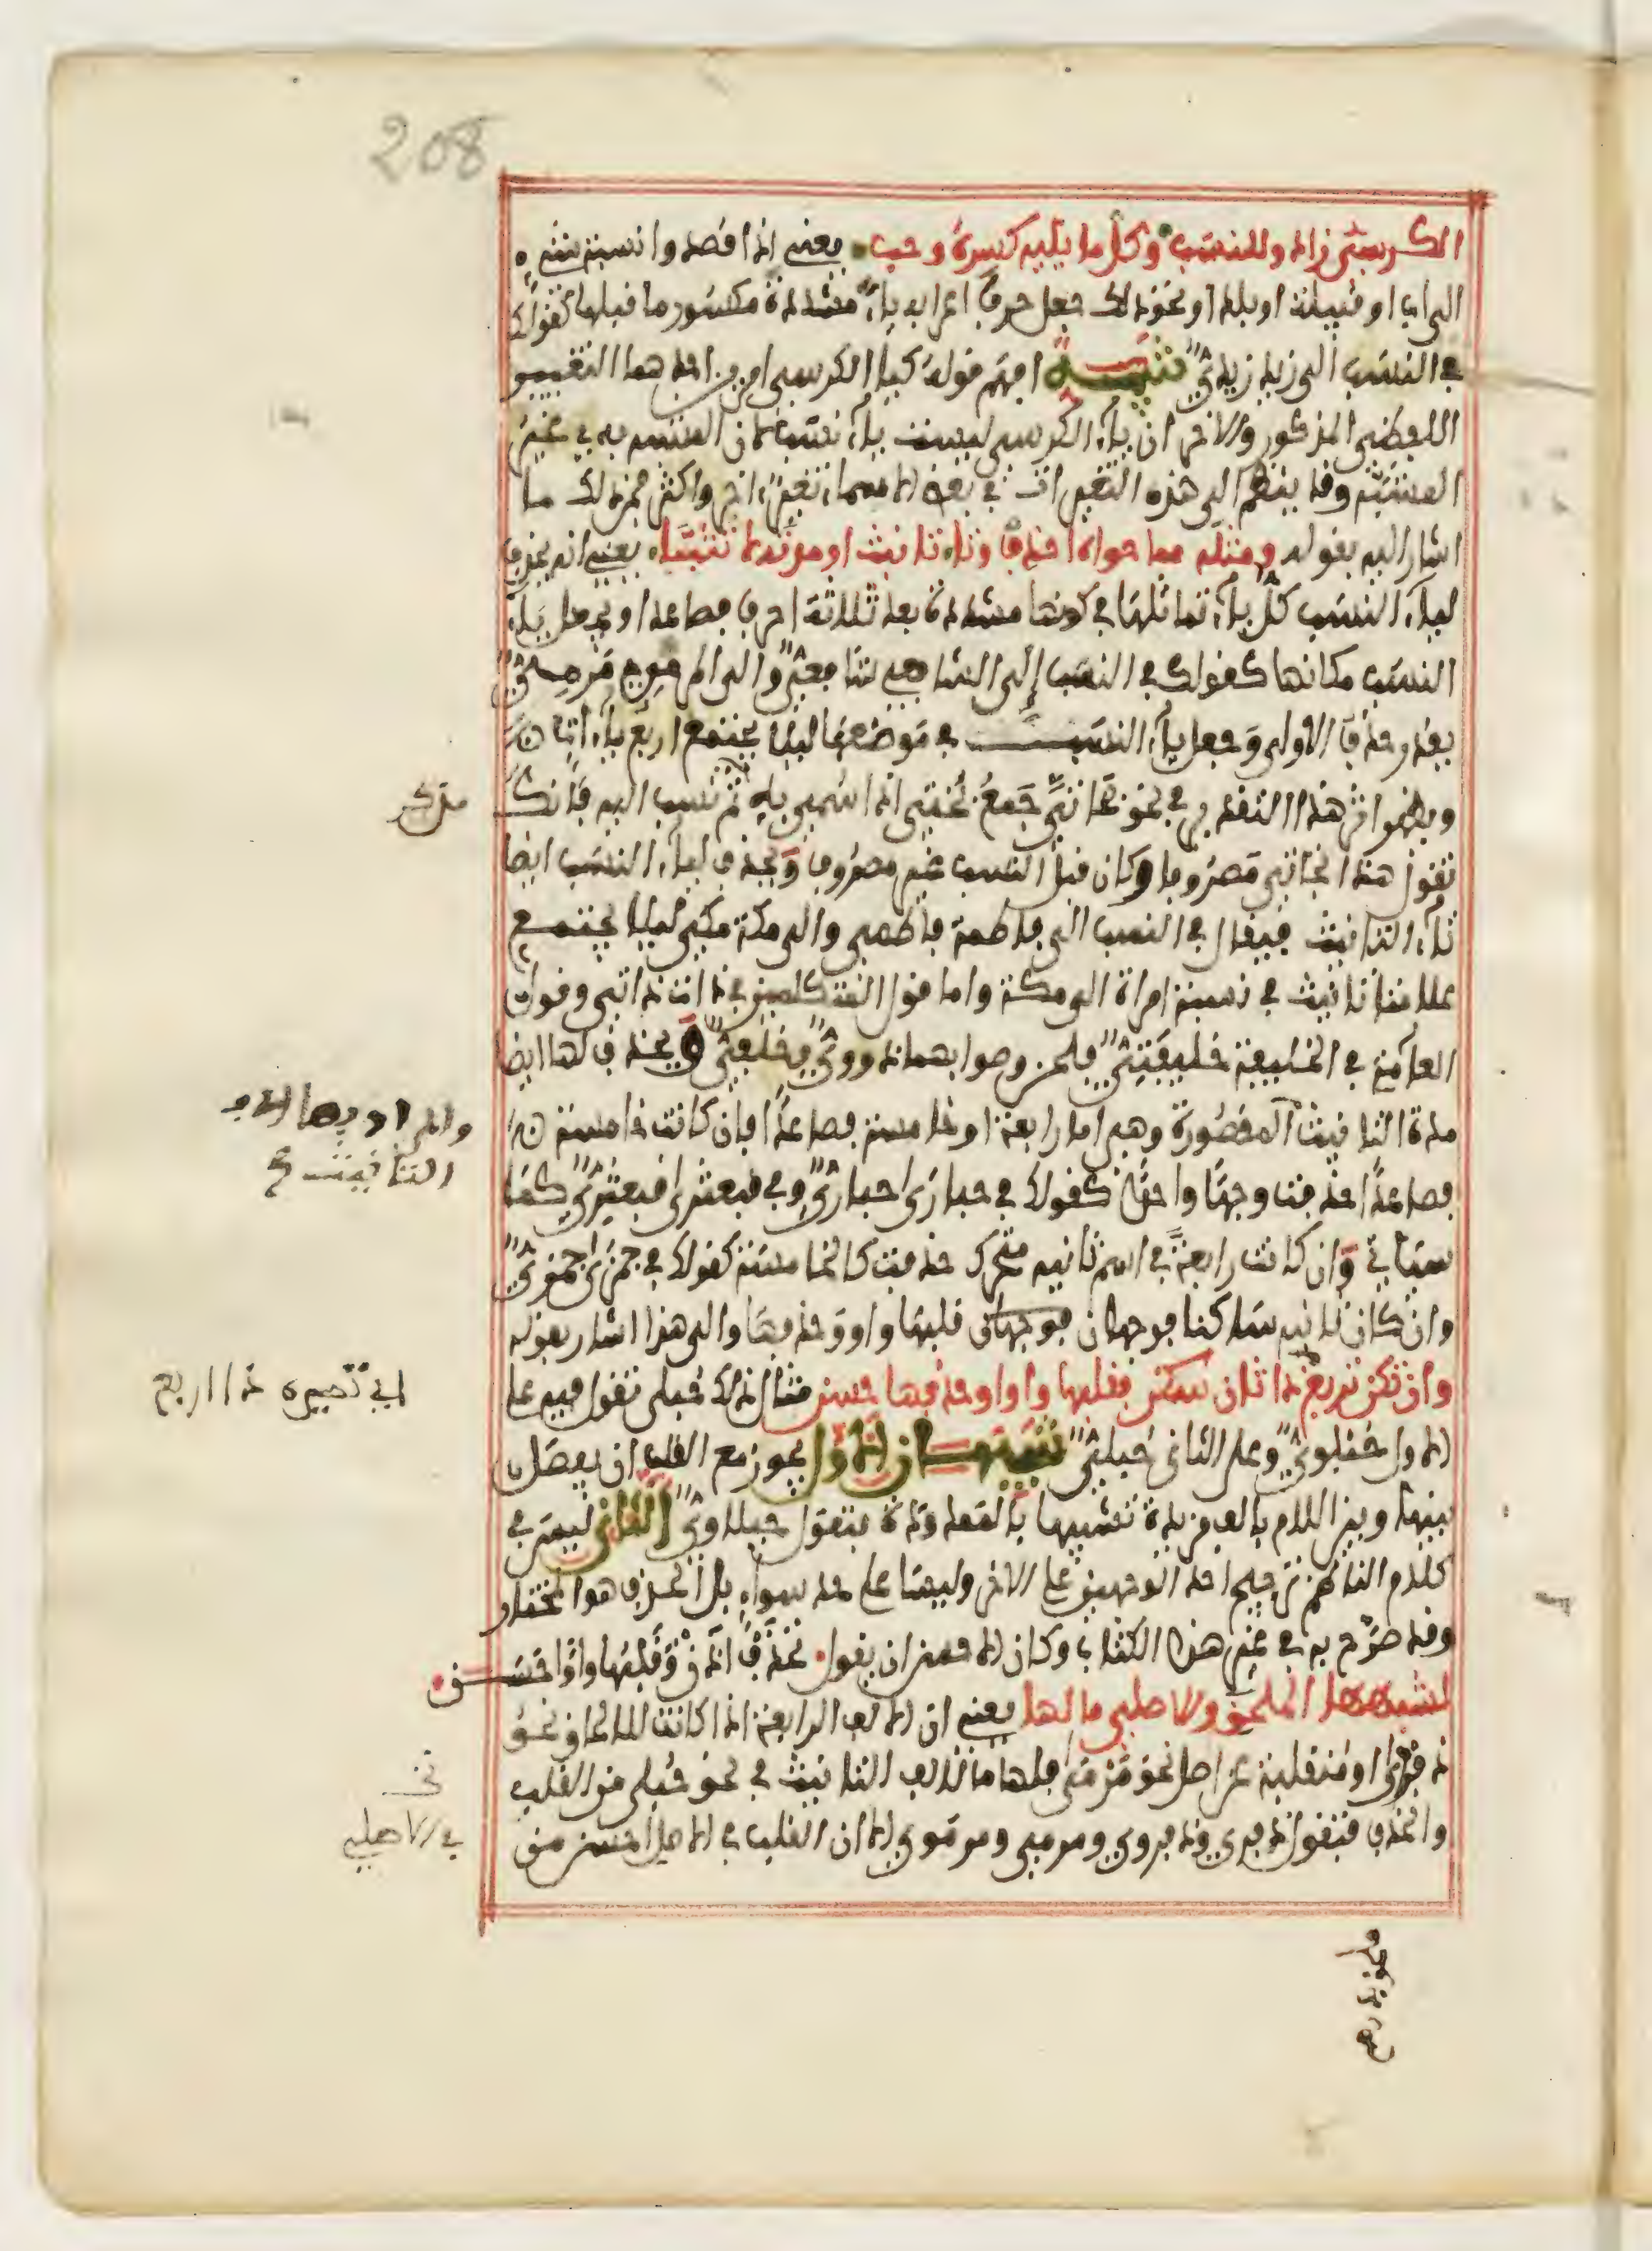 208
الكرسي زادوا للنسب وكل ما يليه كسره وجب يعني اذا قصدوا نسبة شيء
الى اب او قبيلة او بلد او نحو ذلك جعل حرف اعرابه ياء مشددة مكسور ما قبلها كقولك
في النسب الى زيد زيدي تنبيه افهم قوله كيا الكرسي امرين احدهما التغيير
اللفظي المذكور والاخر ان ياء الكرسي ليست ياء نسب لان المشبه به غير
المشبه وقد ينظم الى هذه التغييرات في بعض الاسماء تغيير اخر واكثر فمن ذلك ما
اشار اليه بقوله ومثله مما حواه احذف وتا تانيث او مدته لا تثبتا يعني انه يحذف
لياء النسب كل ياء تماثلها في كونها مشددة بعد ثلاثة احرف فصاعدا ويجعل ياء
النسب مكانها كقولك في النسب الى الشافعي شافعي والى المرمي مرمي
يقدر حذف الاولى وجعل ياء النسب في موضعها ليلا يجتمع اربع ياءات
ويظهر اثر هذا التقدير في نحو بخاتي جمع بختي اذا سمي به ثم نسب اليه فانك
تقول هذا بخاتي مصروفا وكان قبل النسب غير مصروف ويحذف لياء النسب ايضا
تاء التانيث فيقال في النسب الى فاطمة فاطمي والى مكة مكي ليلا يجتمع
علامتا تانيث في نسبة امراة الى مكة واما قول المتكلمين في ذات ذاتي وقول
العامة في الخليفة خليفتي فلحن وصوابهما ذووي وخلفي ويحذف لها ايضا
مدة التانيث المقصورة وهي اما رابعة او خامسة فصاعدا فان كانت خامسة
فصاعدا حذفت وجها واحدا كقولك في حبارى حباري وفي قبعثرى قبعثري كما
سياتي وان كانت رابعة في اسم ثانيه متحرك حذفت كالخامسة كقولك في جمزى جمزي
وان كان ثانيه ساكنا فوجهان قلبها واوا وحذفها والى هذا اشار بقوله
وان تكن تربع ذا ثان سكن فقلبها واوا وحذفها حسن مثال ذلك حبلى تقول فيه على
الاول حبلوي وعلى الثاني حبلي تنبيهان الاول يجوز مع القلب ان يفصل
بينها وبين اللام بالف زيدة تشبيها بالممدودة فتقول حبلاوي الثاني ليس في
كلام الناظم ترجيح احد الوجهين على الاخر وليسا على حد سواء بل الحذف هو المختار
وقد صرح به في غير هذا الكتاب وكان الاحسن ان يقول تحذف اذن وقلبها واوا حسن
لشبهها الملحق والاصلي ما لها يعني ان الالف الرابعة اذا كانت للالحاق نحو
ذفرى او منقلبة عن اصل نحو مرمى فلها ما لالف التانيث في نحو حبلى من القلب
والحذف فتقول ذفري وذفروي ومرمي ومرموي الا ان القلب في الاصل احسن من
والمراد بها الف
التانيث
اي تصيره ذا اربع
نخـ
في الاصلي